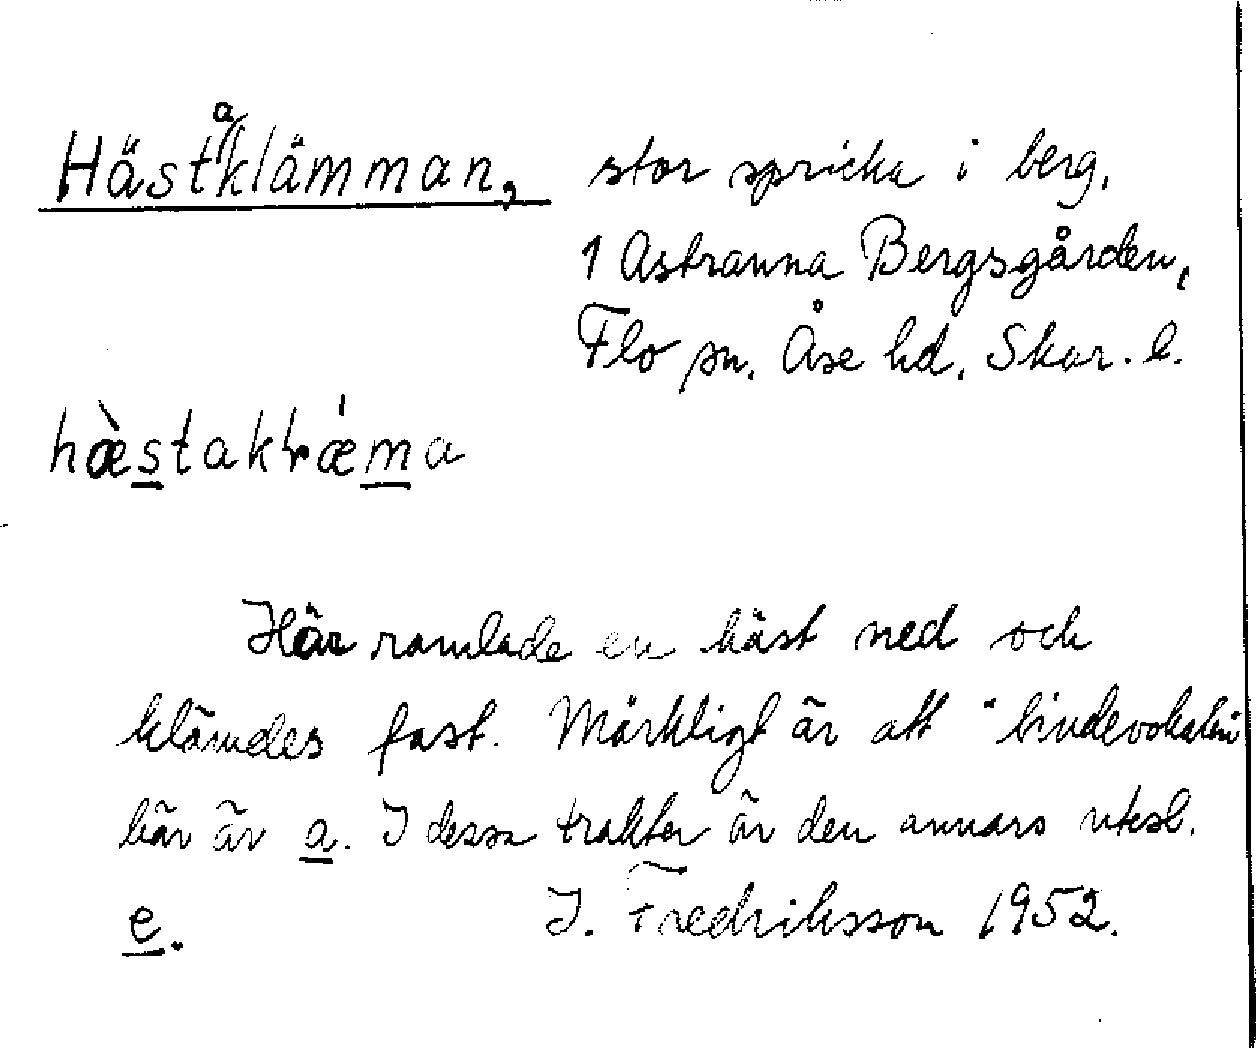 Hästaklämman, stor spricka i berg,
1 Astranna Bergsgården,
Flo sn. Åse hd. Skar. l.
hæ̀stakɽǽma
Här ramlade en häst ned och
klämdes fast. Märkligt är att "bindevokalen
här är a. I dessa trakter är den annars utesl.
e. J. Fredriksson 1952.